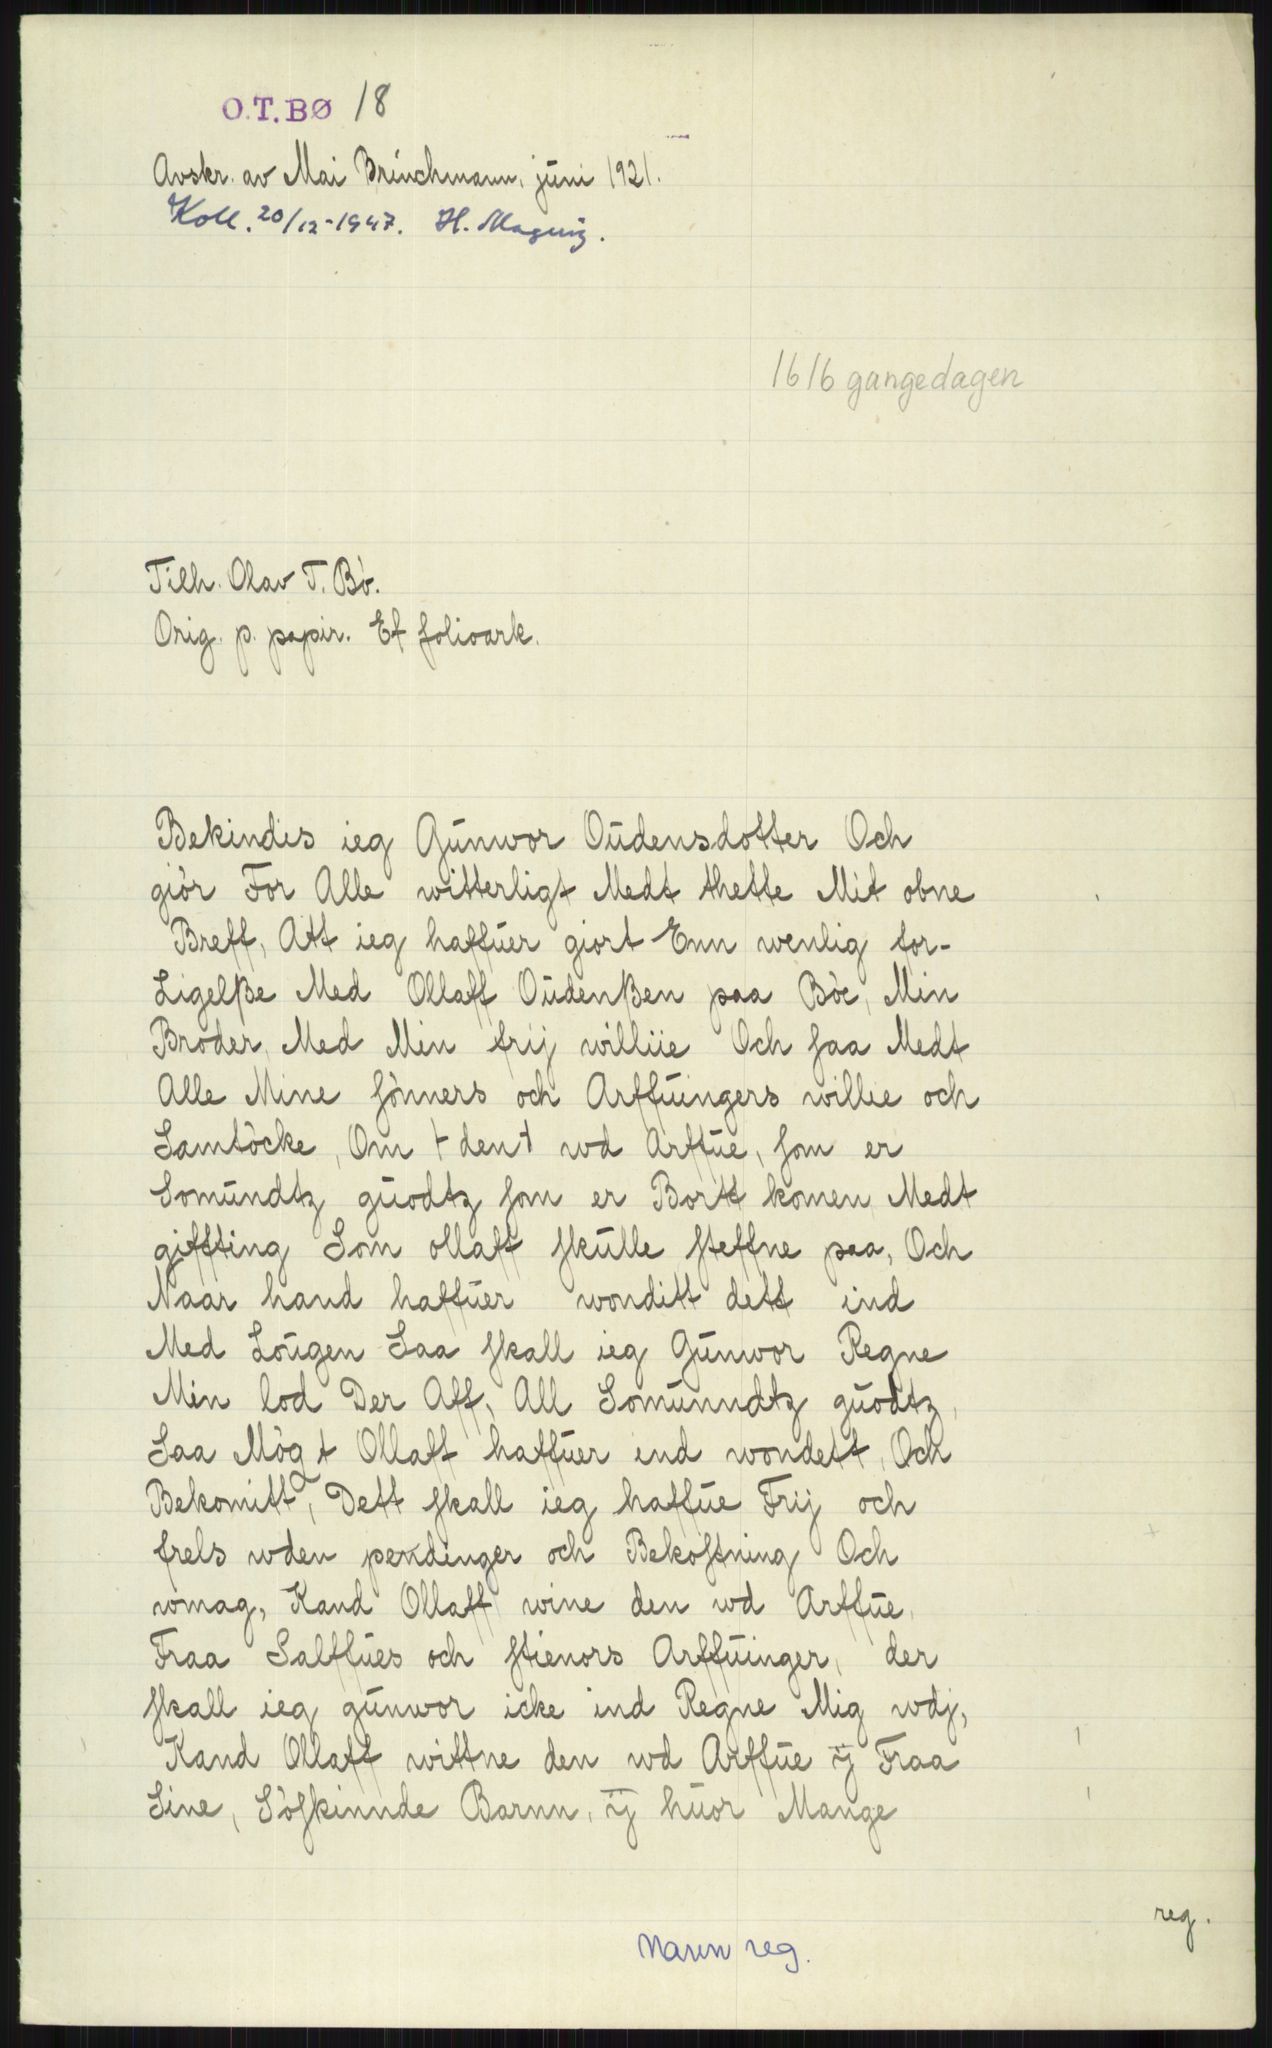 O.T.BØ 18
Avskr. av Mai Brinchmann, juni 1921.
Koll. 20/12-1947. H. Magerøy.
1616 gangedagen
Tilh. Olav T. Bö.
Orig. p. papir. Et folioark.
Bekindis ieg Günwor Oüdensdotter Och
giör For Alle witterligt Medt thette Mit obne
Breff, Att ieg haffüer giort Enn wenlig for-
Ligelße Med Ollaff Oüdenßen paa Böe, Min
Broder, Med Min frij williie Och saa Medt
Alle Mine sönners och Arffüingers willie och
Samtöcke, Om + den + wd Arffüe, som er
Somündtz güodtz som er Bortt komen Medt
giffting Som ollaff skülle steffne paa, Och
Naar hand haffüer wonditt dett ind
Med Loügen Saa skall ieg Günwor Regne
Min lod Der Aff, All Somünndtz güodtz,
Saa Mögt Ollaff haffüer ind wondett, Och
Bekomitt, Dett skall ieg haffüe Frij och
frels wden pendinger och Bekostning Och
wmag, Kand Ollaff wine den wd Arffüe,
Fraa Salffües och stienors Arffüinger, der
skall ieg günwor icke ind Regne Mig wdj,
Kand Ollaff wittne den wd Arffüe ÿ Fraa
Sine, Söskinnde Barnn, ÿ hüor Mange
reg.
Navn reg.